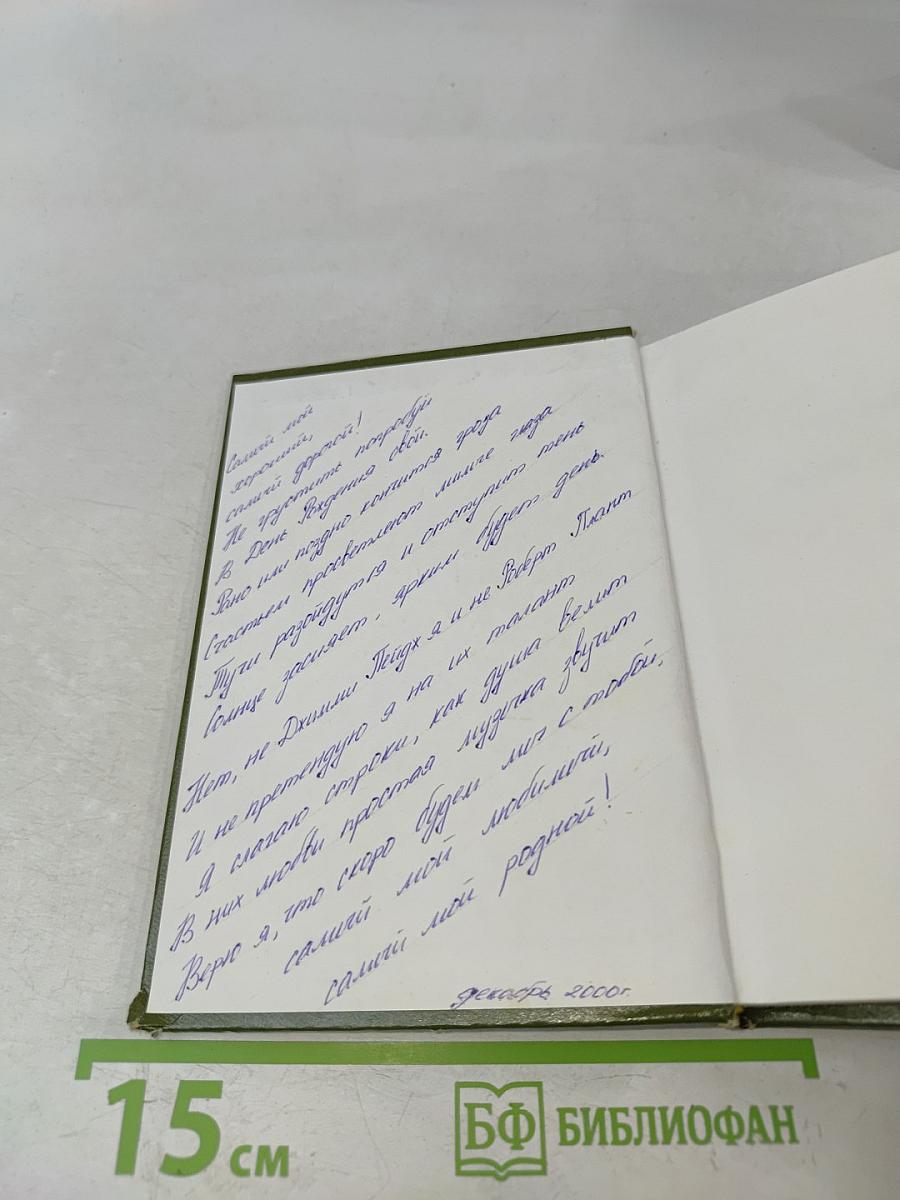 Самый мой
хороший,
самый дорогой!
Не грустить попробуй
В День Рожденья свой.
Рано или поздно кончится гроза
Счастьем просветлеют милые глаза
Тучи разойдутся и отступит тень
Солнце засияет, ярким будет день.
Нет, не Джимми Пейдж я и не Роберт Плант
И не претендую я на их талант
Я слагаю строки, как душа велит
В них любви простая музычка звучит
Верю я, что скоро будем мы с тобой,
самый мой любимый,
самый мой родной!
декабрь 2000г.
15 см
БФ БИБЛИОФАН